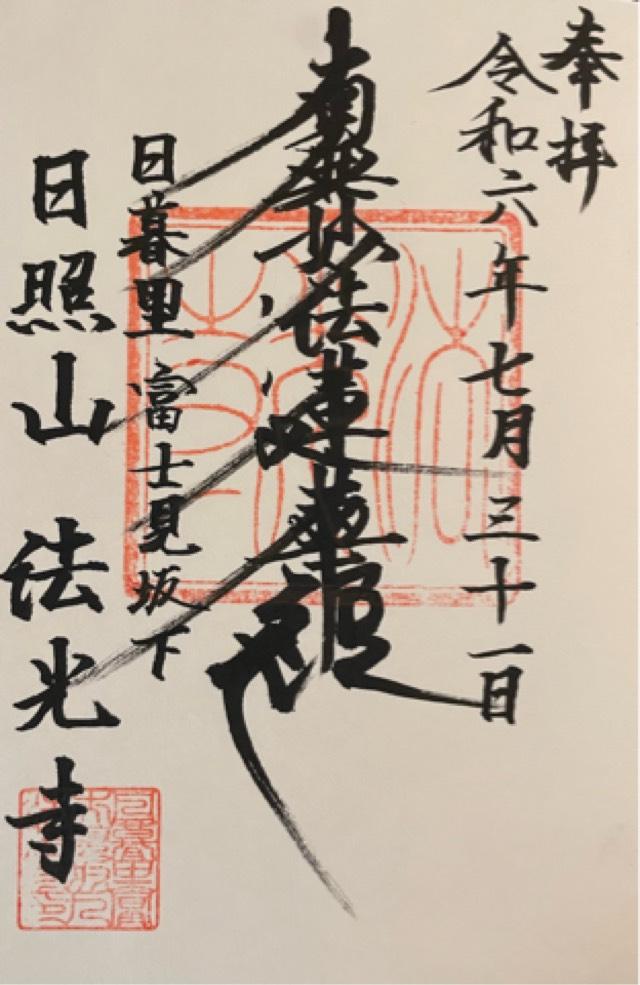 奉拝
令和六年七月三十一日
南無妙法蓮華経
日暮里 富士見坂下
日照山 法光寺